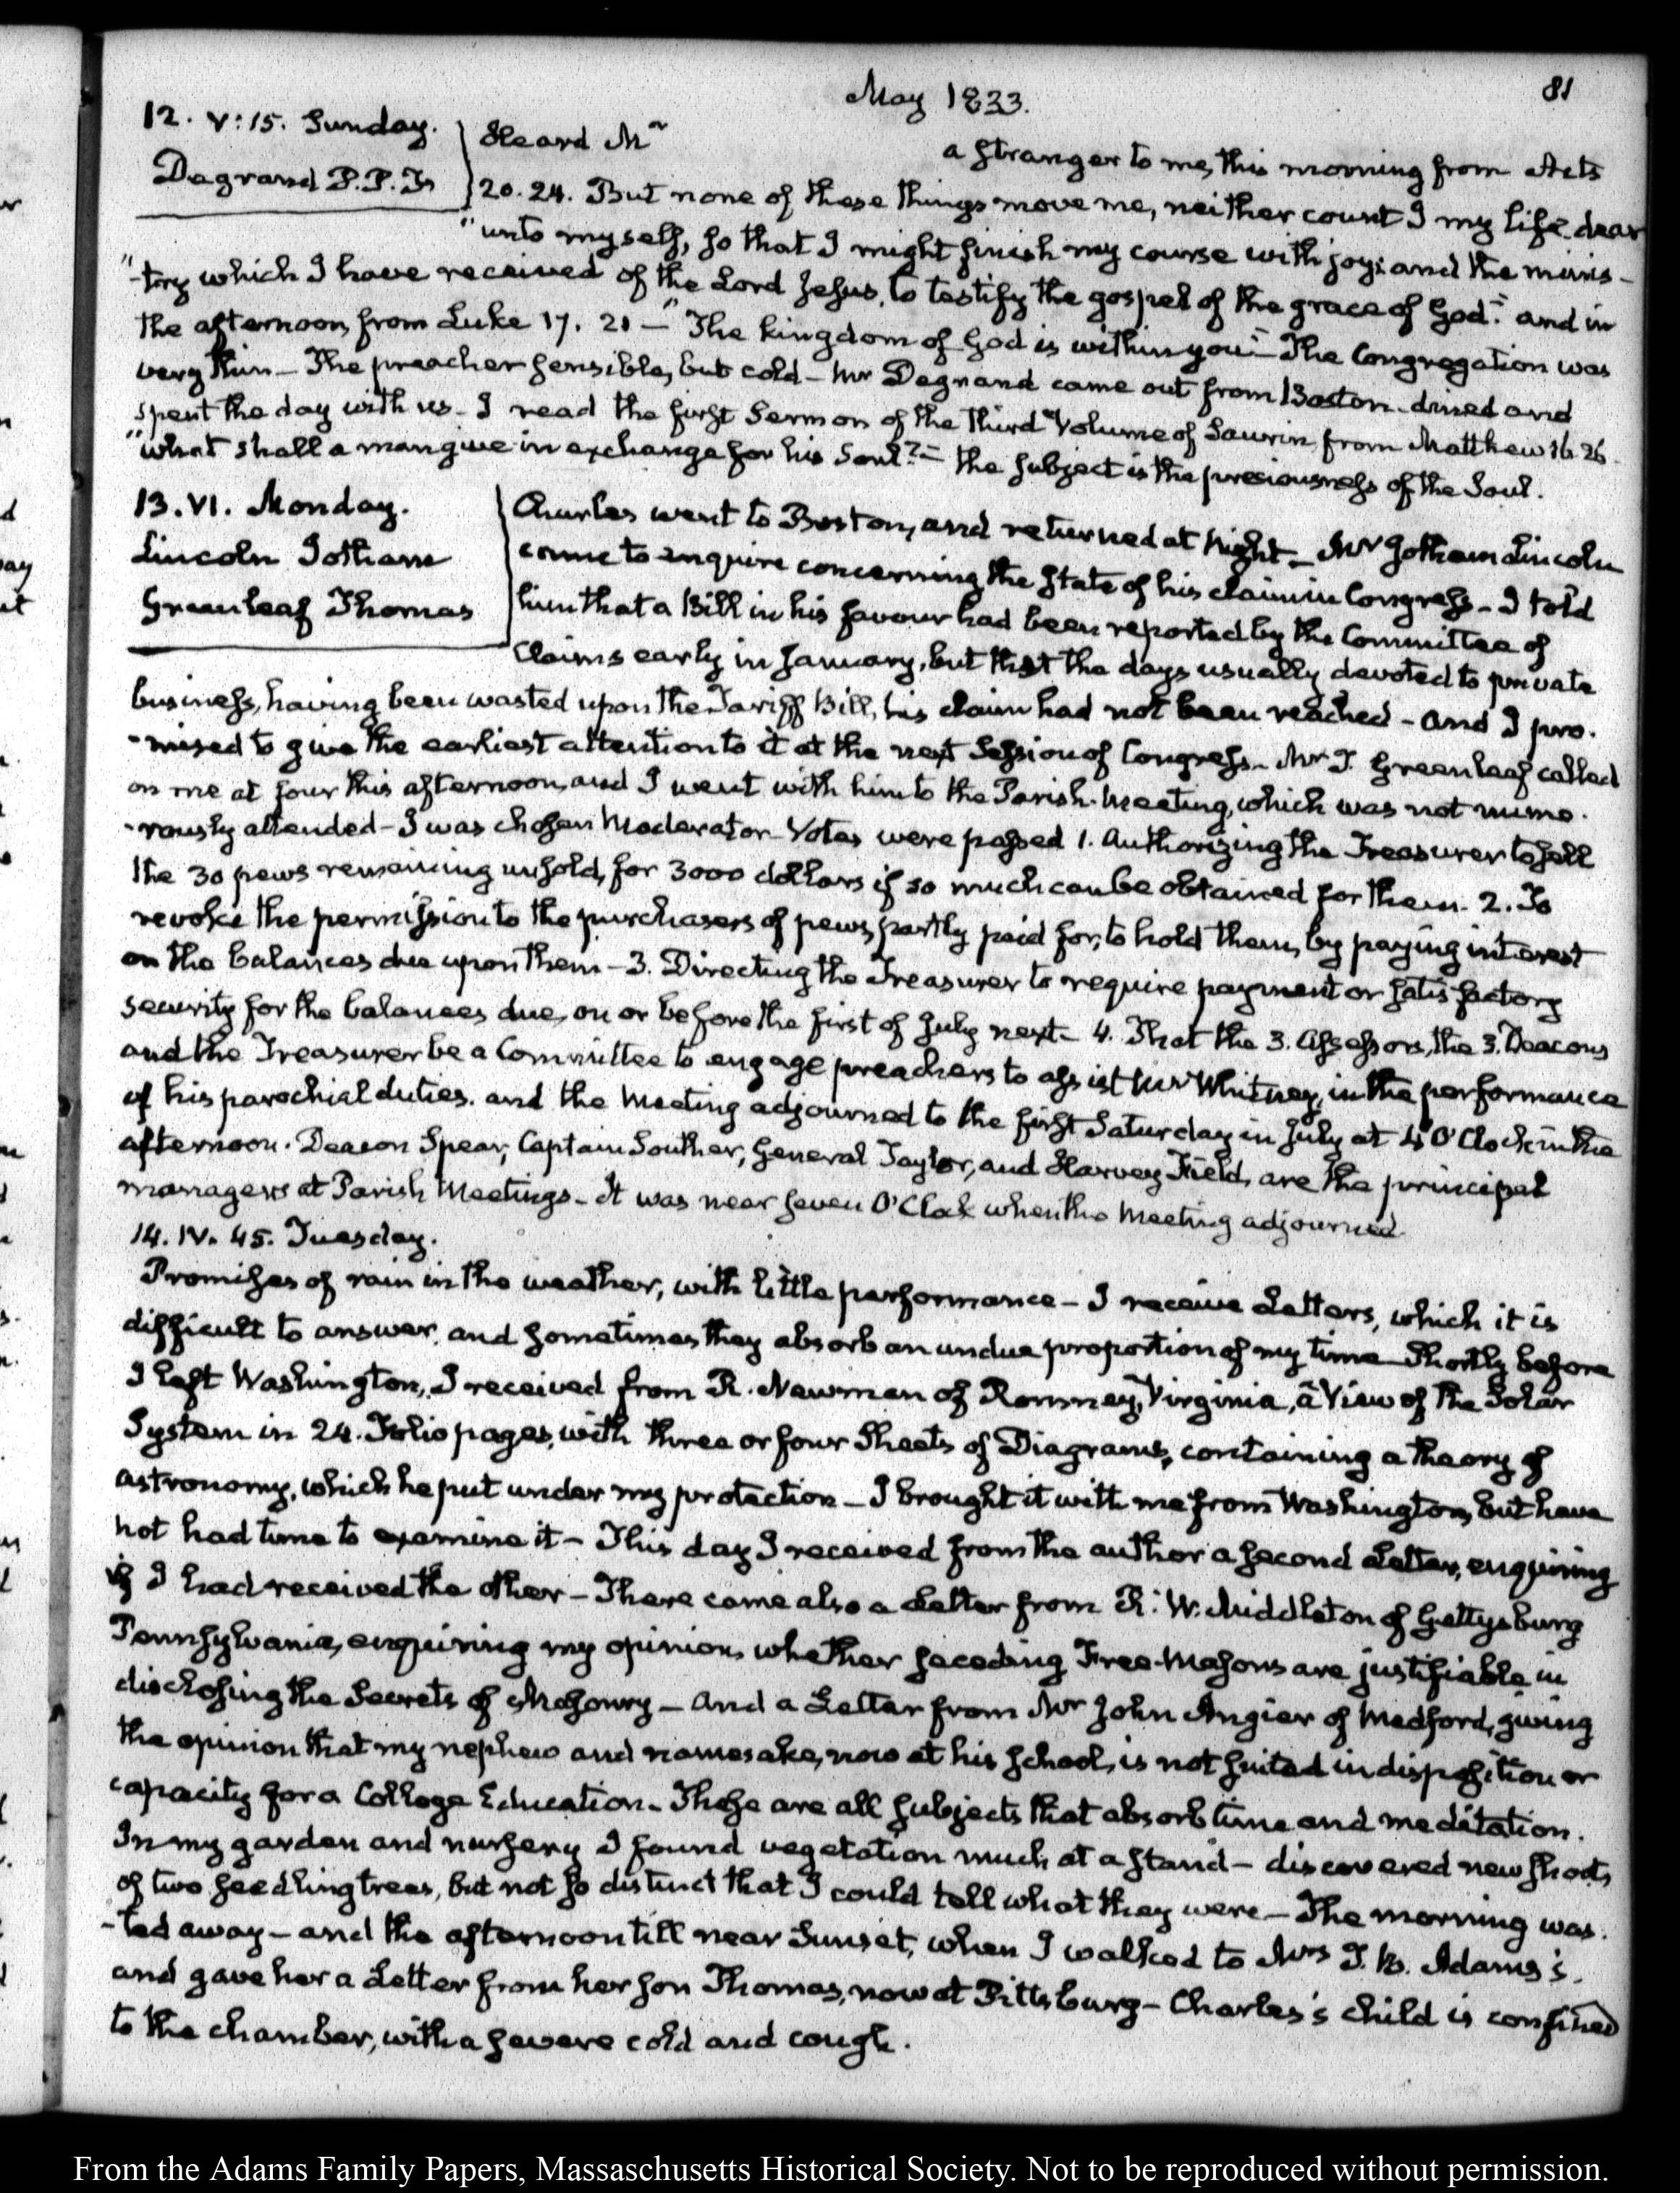 May 1833.
81
12. V:15. Sunday.
Degrand P.P.F.
Heard Mr
a stranger to me, this morning from Acts
20.24. But none of these things move me, neither count I my life dear
"unto myself, so that I might finish my course with joy; and the minis-
"-try which I have received of the Lord Jesus, to testify the gospel of the grace of God." and in
the afternoon, from Luke 17. 21 — "The kingdom of God is within you" — The Congregation was
very thin — The preacher sensible, but cold — Mr Degrand came out from Boston, dined and
spent the day with us — I read the first Sermon of the third Volume of Saurin from Matthew 16.26.
"what shall a man give in exchange for his Soul?" — the subject is the preciousness of the Soul.
13. VI. Monday.
Lincoln Jotham
Greenleaf Thomas
Charles went to Boston, and returned at Night — Mr Jotham Lincoln
came to enquire concerning the State of his claim in Congress — I told
him that a Bill in his favour had been reported by the Committee of
Claims early in January, but that the days usually devoted to private
business, having been wasted upon the Tariff Bill, his claim had not been reached — and I pro-
-mised to give the earliest attention to it at the next Session of Congress — Mr T. Greenleaf called
on me at four this afternoon, and I went with him to the Parish-Meeting, which was not nume-
-rously attended — I was chosen Moderator — Votes were passed 1. Authorizing the Treasurer to sell
the 30 pews remaining unsold, for 3000 dollars if so much can be obtained for them. 2. To
revoke the permission to the purchasers of pews, partly paid for, to hold them, by paying interest
on the balances due upon them — 3. Directing the Treasurer to require payment or satisfactory
security for the balances due, on or before the first of July next — 4. That the 3. Assessors, the 3. Deacons
and the Treasurer be a Committee to engage preachers to assist Mr Whitney, in the performance
of his parochial duties. and the Meeting adjourned to the first Saturday in July at 4 O'Clock in the
afternoon. Deacon Spear, Captain Souther, General Taylor, and Harvey Field, are the principal
managers at Parish Meetings — It was near seven O'Clock when the Meeting adjourned.
14. IV. 45. Tuesday.
Promises of rain in the weather, with little performance — I receive Letters, which it is
difficult to answer, and sometimes they absorb an undue proportion of my time — Shortly before
I left Washington, I received from R. Newman of Romney, Virginia, a View of the Solar
System in 24. Folio pages, with three or four Sheets of Diagrams, containing a theory of
astronomy, which he put under my protection — I brought it with me from Washington, but have
not had time to examine it — This day I received from the author a second Letter, enquiring
if I had received the other — There came also a Letter from R. W. Middleton of Gettysburg
Pennsylvania, enquiring my opinion, whether seceding Free-Masons are justifiable in
disclosing the Secrets of Masonry — and a Letter from Mr John Angier of Medford, giving
the opinion that my nephew and namesake, now at his school, is not suited in disposition or
capacity for a College Education — These are all subjects that absorb time and meditation.
In my garden and nursery I found vegetation much at a stand — discovered new shoots
of two seedling trees, but not so distinct that I could tell what they were — The morning was-
-ted away — and the afternoon till near Sunset, when I walked to Mrs T. B. Adams's.
and gave her a Letter from her son Thomas, now at Pittsburg — Charles's child is confined
to the chamber, with a severe cold and cough.
From the Adams Family Papers, Massachusetts Historical Society. Not to be reproduced without permission.